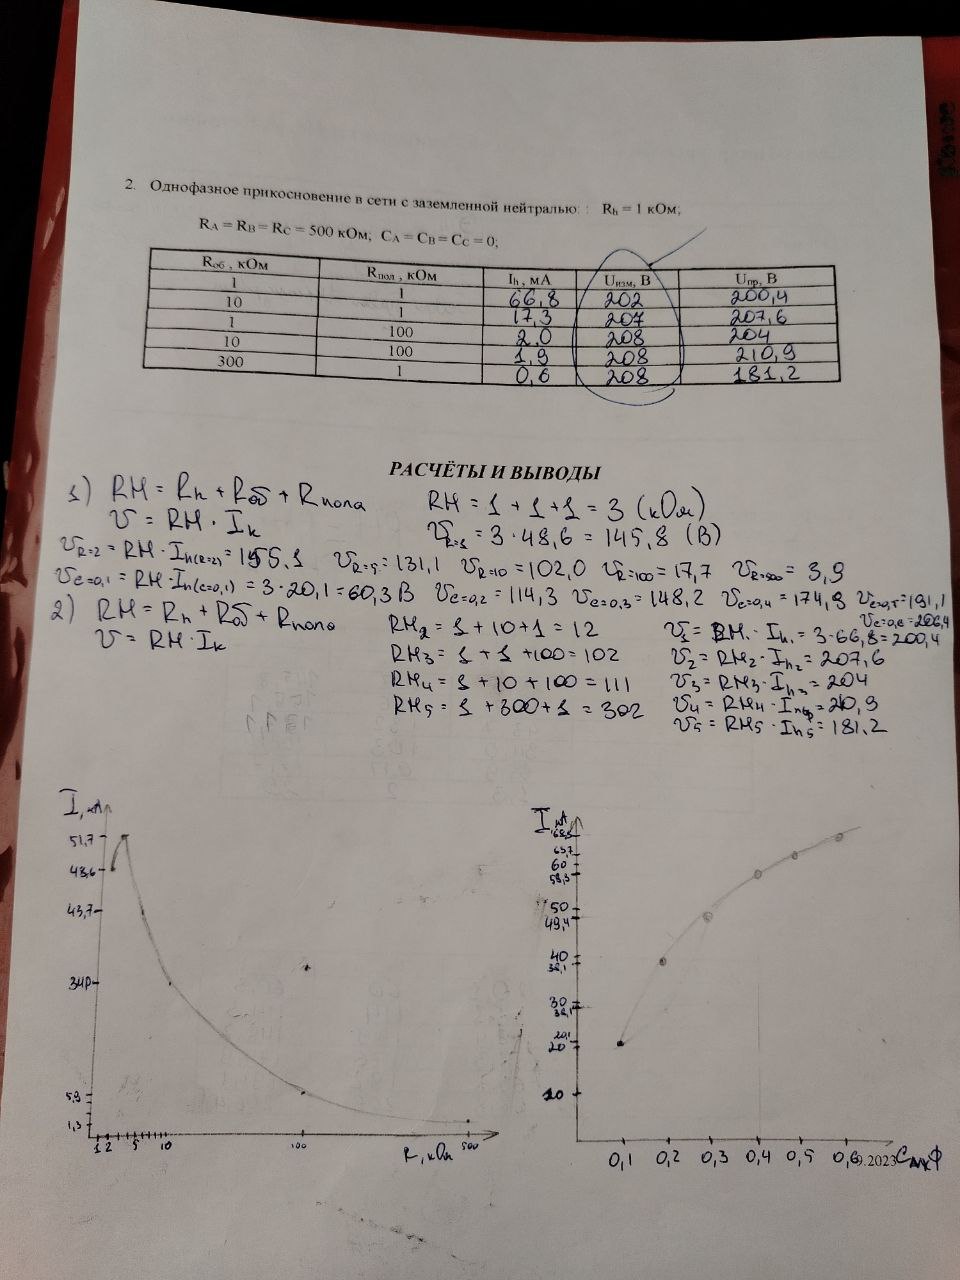 2. Однофазное прикосновение в сети с заземленной нейтралью: : Rh = 1 кОм;
RA = RB = RC = 500 кОм; CA = CB = CC = 0;
Rоб , кОм Rпол , кОм Ih , мА Uизм, В Uпр, В
1 1 66,8 202 200,4
10 1 17,3 207 207,6
1 100 2,0 208 204
10 100 1,9 208 210,9
300 1 0,6 208 181,2
РАСЧЁТЫ И ВЫВОДЫ
1) RН = Rh + Rоб + Rпола RН = 1 + 1 + 1 = 3 (кОм)
U = RН · Ih UR=1 = 3 · 48,6 = 145,8 (В)
UR=2 = RН · Ih(R=2) = 155,1 UR=5 = 131,1 UR=10 = 102,0 UR=100 = 17,7 UR=500 = 3,9
Uc=0,1 = RН · Ih(c=0,1) = 3 · 20,1 = 60,3 В Uc=0,2 = 114,3 Uc=0,3 = 148,2 Uc=0,4 = 174,9 Uc=0,5 = 191,1
Uc=0,6 = 206,4
2) RН = Rh + Rоб + Rпола RН2 = 1 + 10 + 1 = 12 U1 = RН1 · Ih1 = 3 · 66,8 = 200,4
U = RН · Ih RН3 = 1 + 1 + 100 = 102 U2 = RН2 · Ih2 = 207,6
RН4 = 1 + 10 + 100 = 111 U3 = RН3 · Ih3 = 204
RН5 = 1 + 300 + 1 = 302 U4 = RН4 · Ih4 = 210,9
U5 = RН5 · Ih5 = 181,2
I, мА
51,7
48,6
43,7
340
5,9
1,3
1 2 5 10 100 500
R, кОм
I, мА
68,8
63,7
60
58,3
50
49,4
40
38,1
30
38,1
20,1
20
10
0,1 0,2 0,3 0,4 0,5 0,6 9.2023 C, мкФ